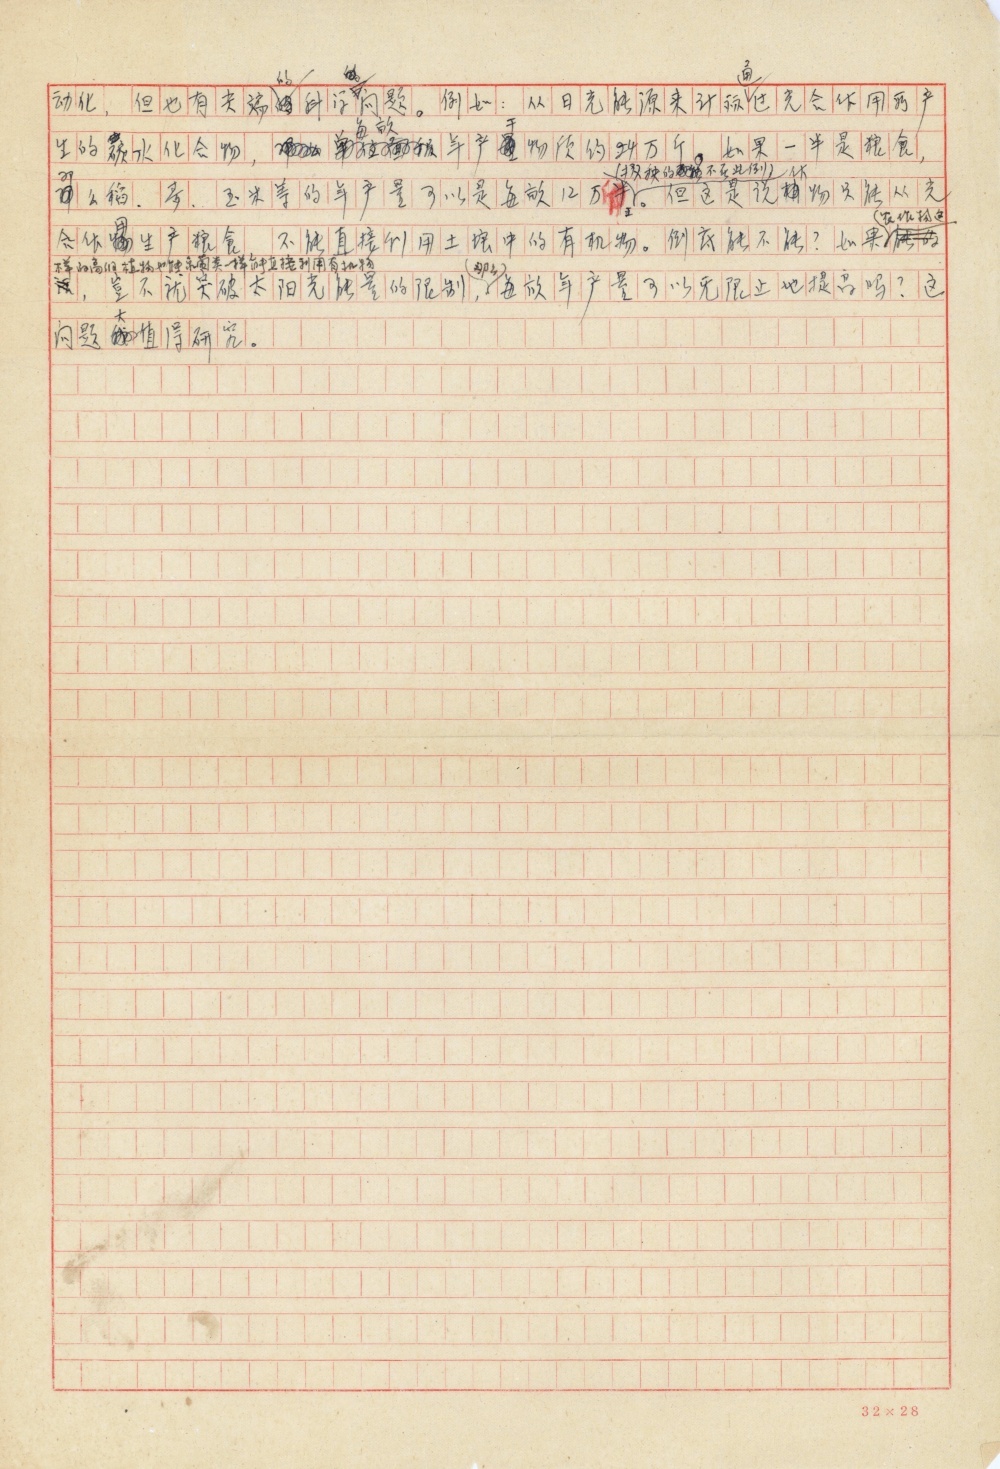 动化，但也有尖端的科学的问题。例如：从日光能源来计标通过光合作用所产
生的碳水化合物，每亩年产干物质约24万斤。如果一半是粮食，
那么稻、麦、玉米等的年产量可以是每亩12万斤（移秧的不在此例）。但这是说作物只能从光
合作用生产粮食，不能直接利用土壤中的有机物。倒底能不能？如果（农作物这
样的高级植物也能和菌类一样能直接利用有机物
，岂不就突破太阳光能量的限制，（那么）每亩年产量可以无限止地提高吗？这
问题大值得研究。
32×28